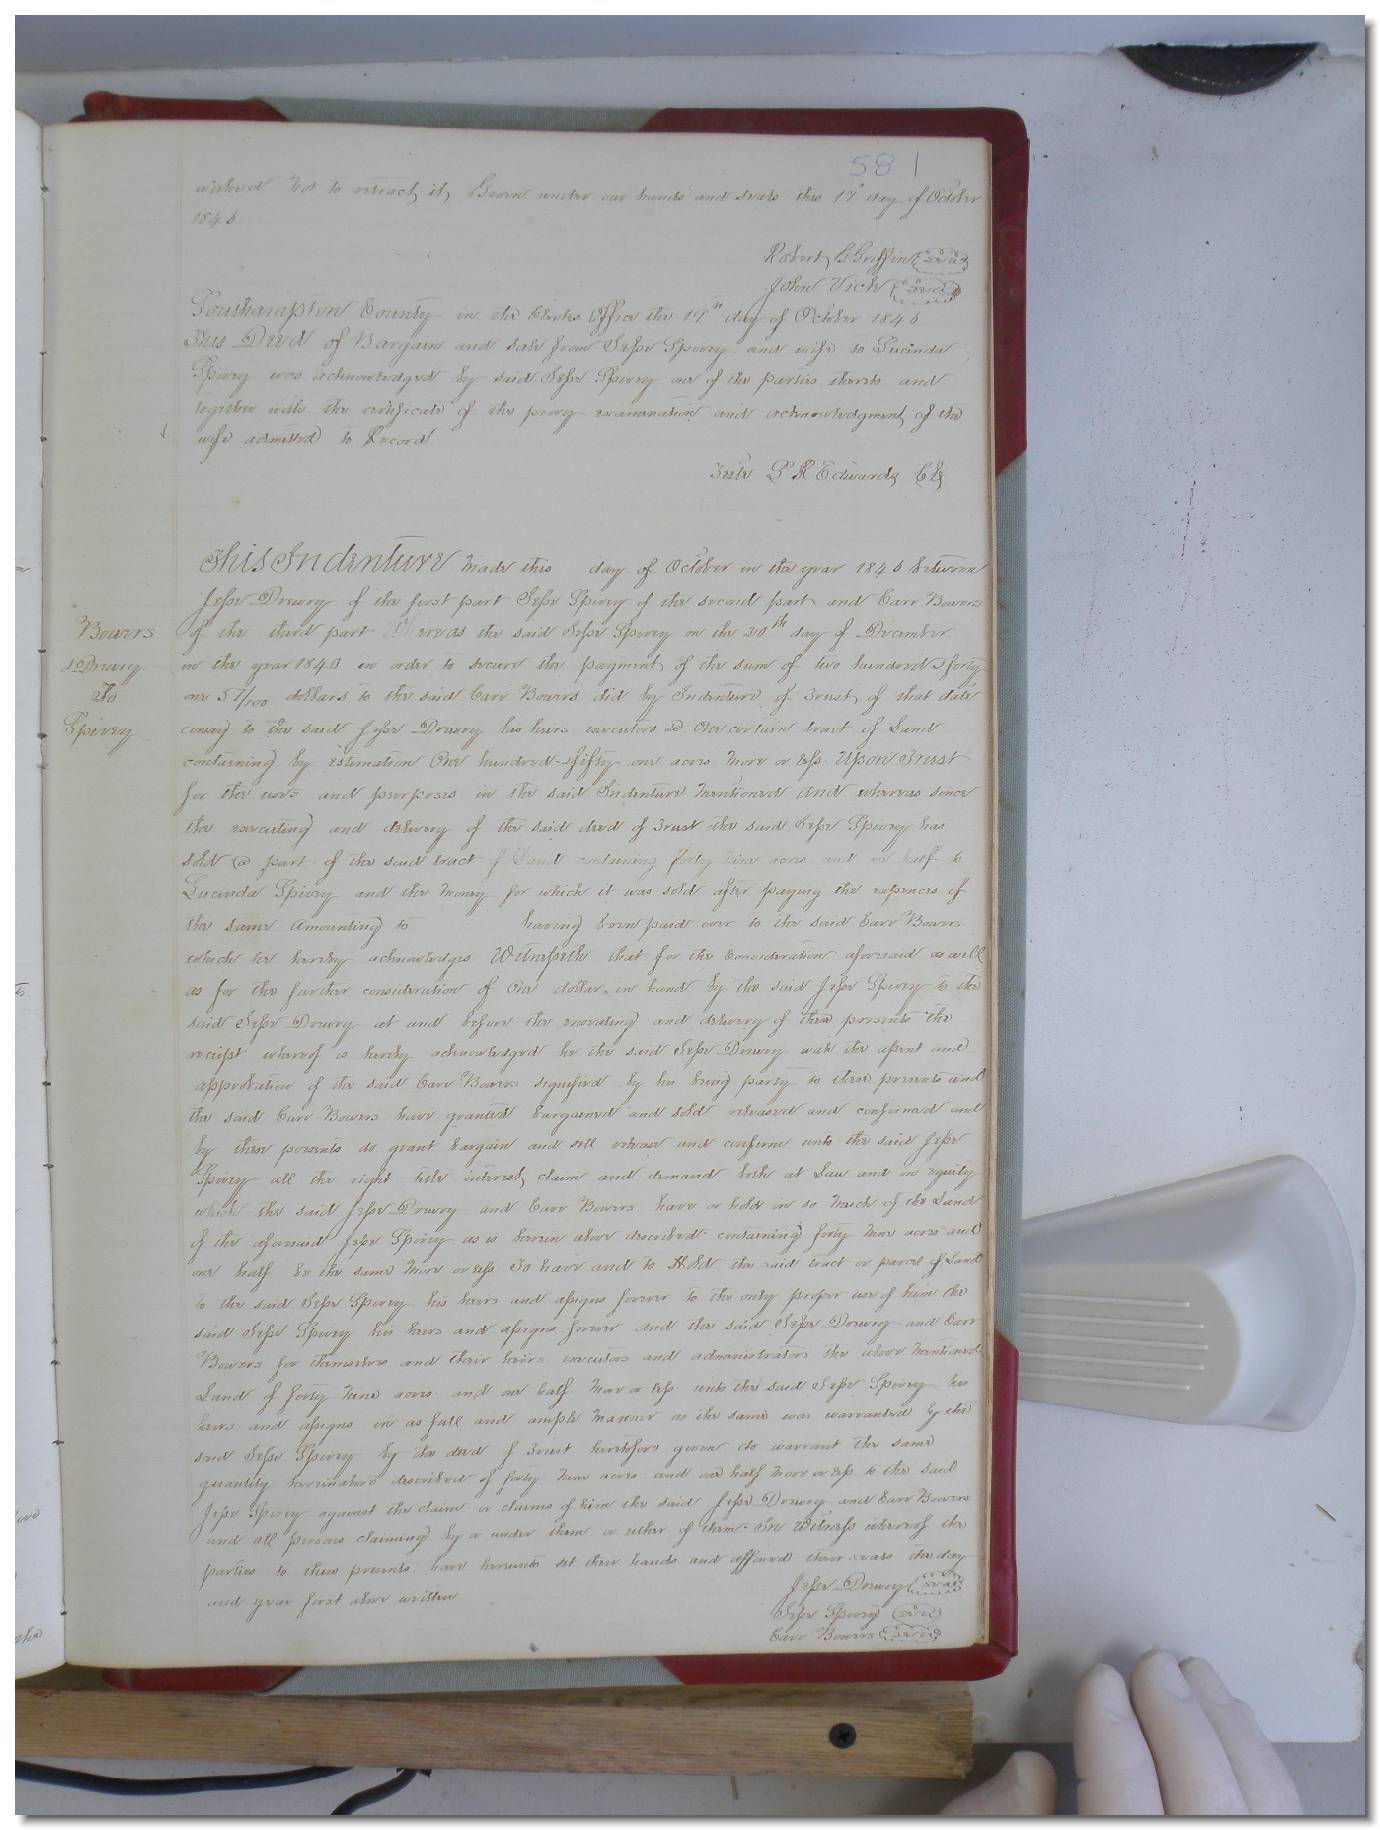 581
wished not to retract it, Given under our hands and seals this 17th day of October
1846
Robert G Griffin (seal)
John Vick (seal)
Southampton County in the Clerks Office the 19th day of October 1846
This Deed of Bargain and sale from Jesse Spivey and wife to Lucinda
Spivey was acknowledged by said Jesse Spivey one of the parties thereto and
together with the certificate of the privy examination and acknowledgment of the
wife admitted to Record
Teste L R Edwards Clk
This Indenture made this day of October in the year 1846 between
Jesse Drewry of the first part Jesse Spivey of the second part and Carr Bowers
of the third part Whereas the said Jesse Spivey on the 30th day of December
in the year 1840 in order to secure the payment of the sum of two hundred & forty
one 57/100 dollars to the said Carr Bowers did by Indenture of Trust of that date
convey to the said Jesse Drewry his heirs executors &c One certain tract of Land
containing by estimation One hundred & fifty one acres more or less Upon Trust
for the uses and purposes in the said Indenture mentioned And whereas since
the executing and delivery of the said deed of Trust the said Jesse Spivey has
sold a part of the said tract of Land containing forty nine acres and one half to
Lucinda Spivey and the money for which it was sold after paying the expences of
the same amounting to having been paid over to the said Carr Bowers
which he hereby acknowledges Witnesseth that for the consideration aforesaid as well
as for the further consideration of One dollar in hand by the said Jesse Spivey to the
said Jesse Drewry at and before the ensealing and delivery of these presents the
receipt whereof is hereby acknowledged he the said Jesse Drewry with the assent and
approbation of the said Carr Bowers signified by his being party to these presents and
the said Carr Bowers have granted bargained and sold released and confirmed and
by these presents do grant bargain and sell release and confirm unto the said Jesse
Spivey all the right title interest, claim and demand both at Law and in equity
which the said Jesse Drewry and Carr Bowers have or hold in so much of the Land
of the aforesaid Jesse Spivey as is herein above described containing forty nine acres and
one half be the same more or less To have and to Hold the said tract or parcel of Land
to the said Jesse Spivey his heirs and assigns forever to the only proper use of him the
said Jesse Spivey his heirs and assigns forever and the said Jesse Drewry and Carr
Bowers for themselves and their heirs executors and administrators the above mentioned
Land of forty nine acres and one half more or less unto the said Jesse Spivey his
heirs and assigns in as full and ample manner as the same was warranted by the
said Jesse Spivey by the deed of Trust heretofore given do warrant the same
quantity hereinabove described of forty nine acres and one half more or less to the said
Jesse Spivey against the claim or claims of him the said Jesse Drewry and Carr Bowers
and all persons claiming by or under them or either of them. In Witness whereof the
parties to these presents have hereunto set their hands and affixed their seals the day
and year first above written
Jesse Drewry (seal)
Jesse Spivey (seal)
Carr Bowers (seal)
Bowers
& Drewry
To
Spivey